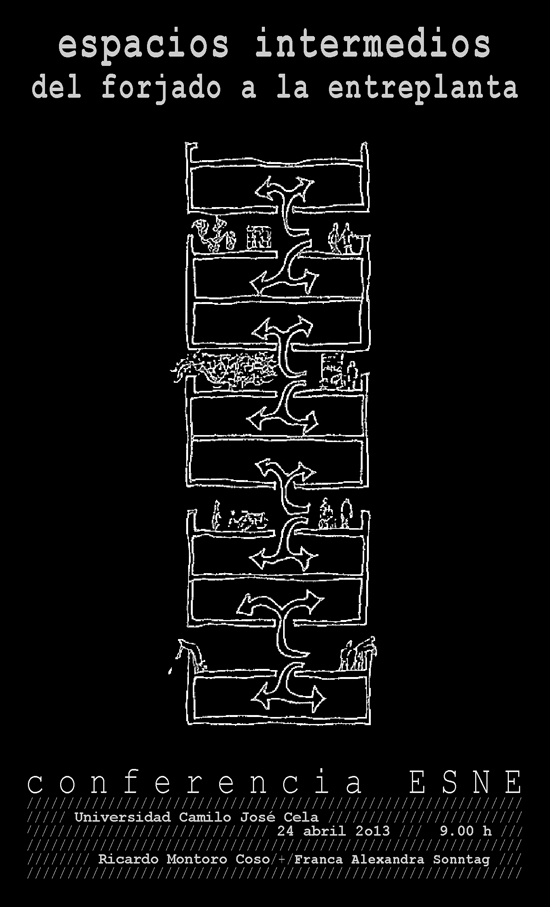 espacios intermedios
del forjado a la entreplanta
conferencia ESNE
Universidad Camilo José Cela
24 abril 2o13 /// 9.00 h
Ricardo Montoro Coso/+/Franca Alexandra Sonntag